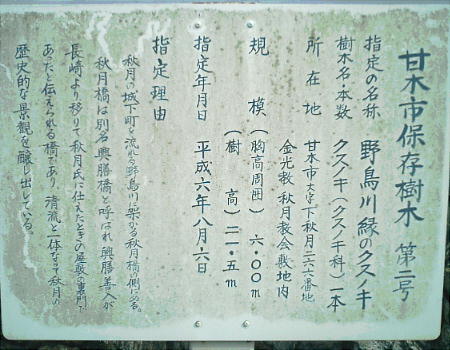 甘木市保存樹木 第二号
指定の名称 野鳥川縁のクスノキ
樹木名本数 クスノキ(クスノキ科)一本
所在地 甘木市大字下秋月二六六番地
金光教 秋月教会敷地内
規模(胸高周囲) 六・〇〇m
(樹高) 二一・五m
指定年月日 平成六年八月六日
指定理由
秋月の城下町を流れる野鳥川に架る秋月橋の側にある。
秋月橋は別名興膳橋と呼ばれ興膳善入が
長崎より移りて秋月氏に仕えたときの屋敷の裏門で
あったと伝えられる橋であり、清流と一体なって秋月の
歴史的な景観を醸し出している。